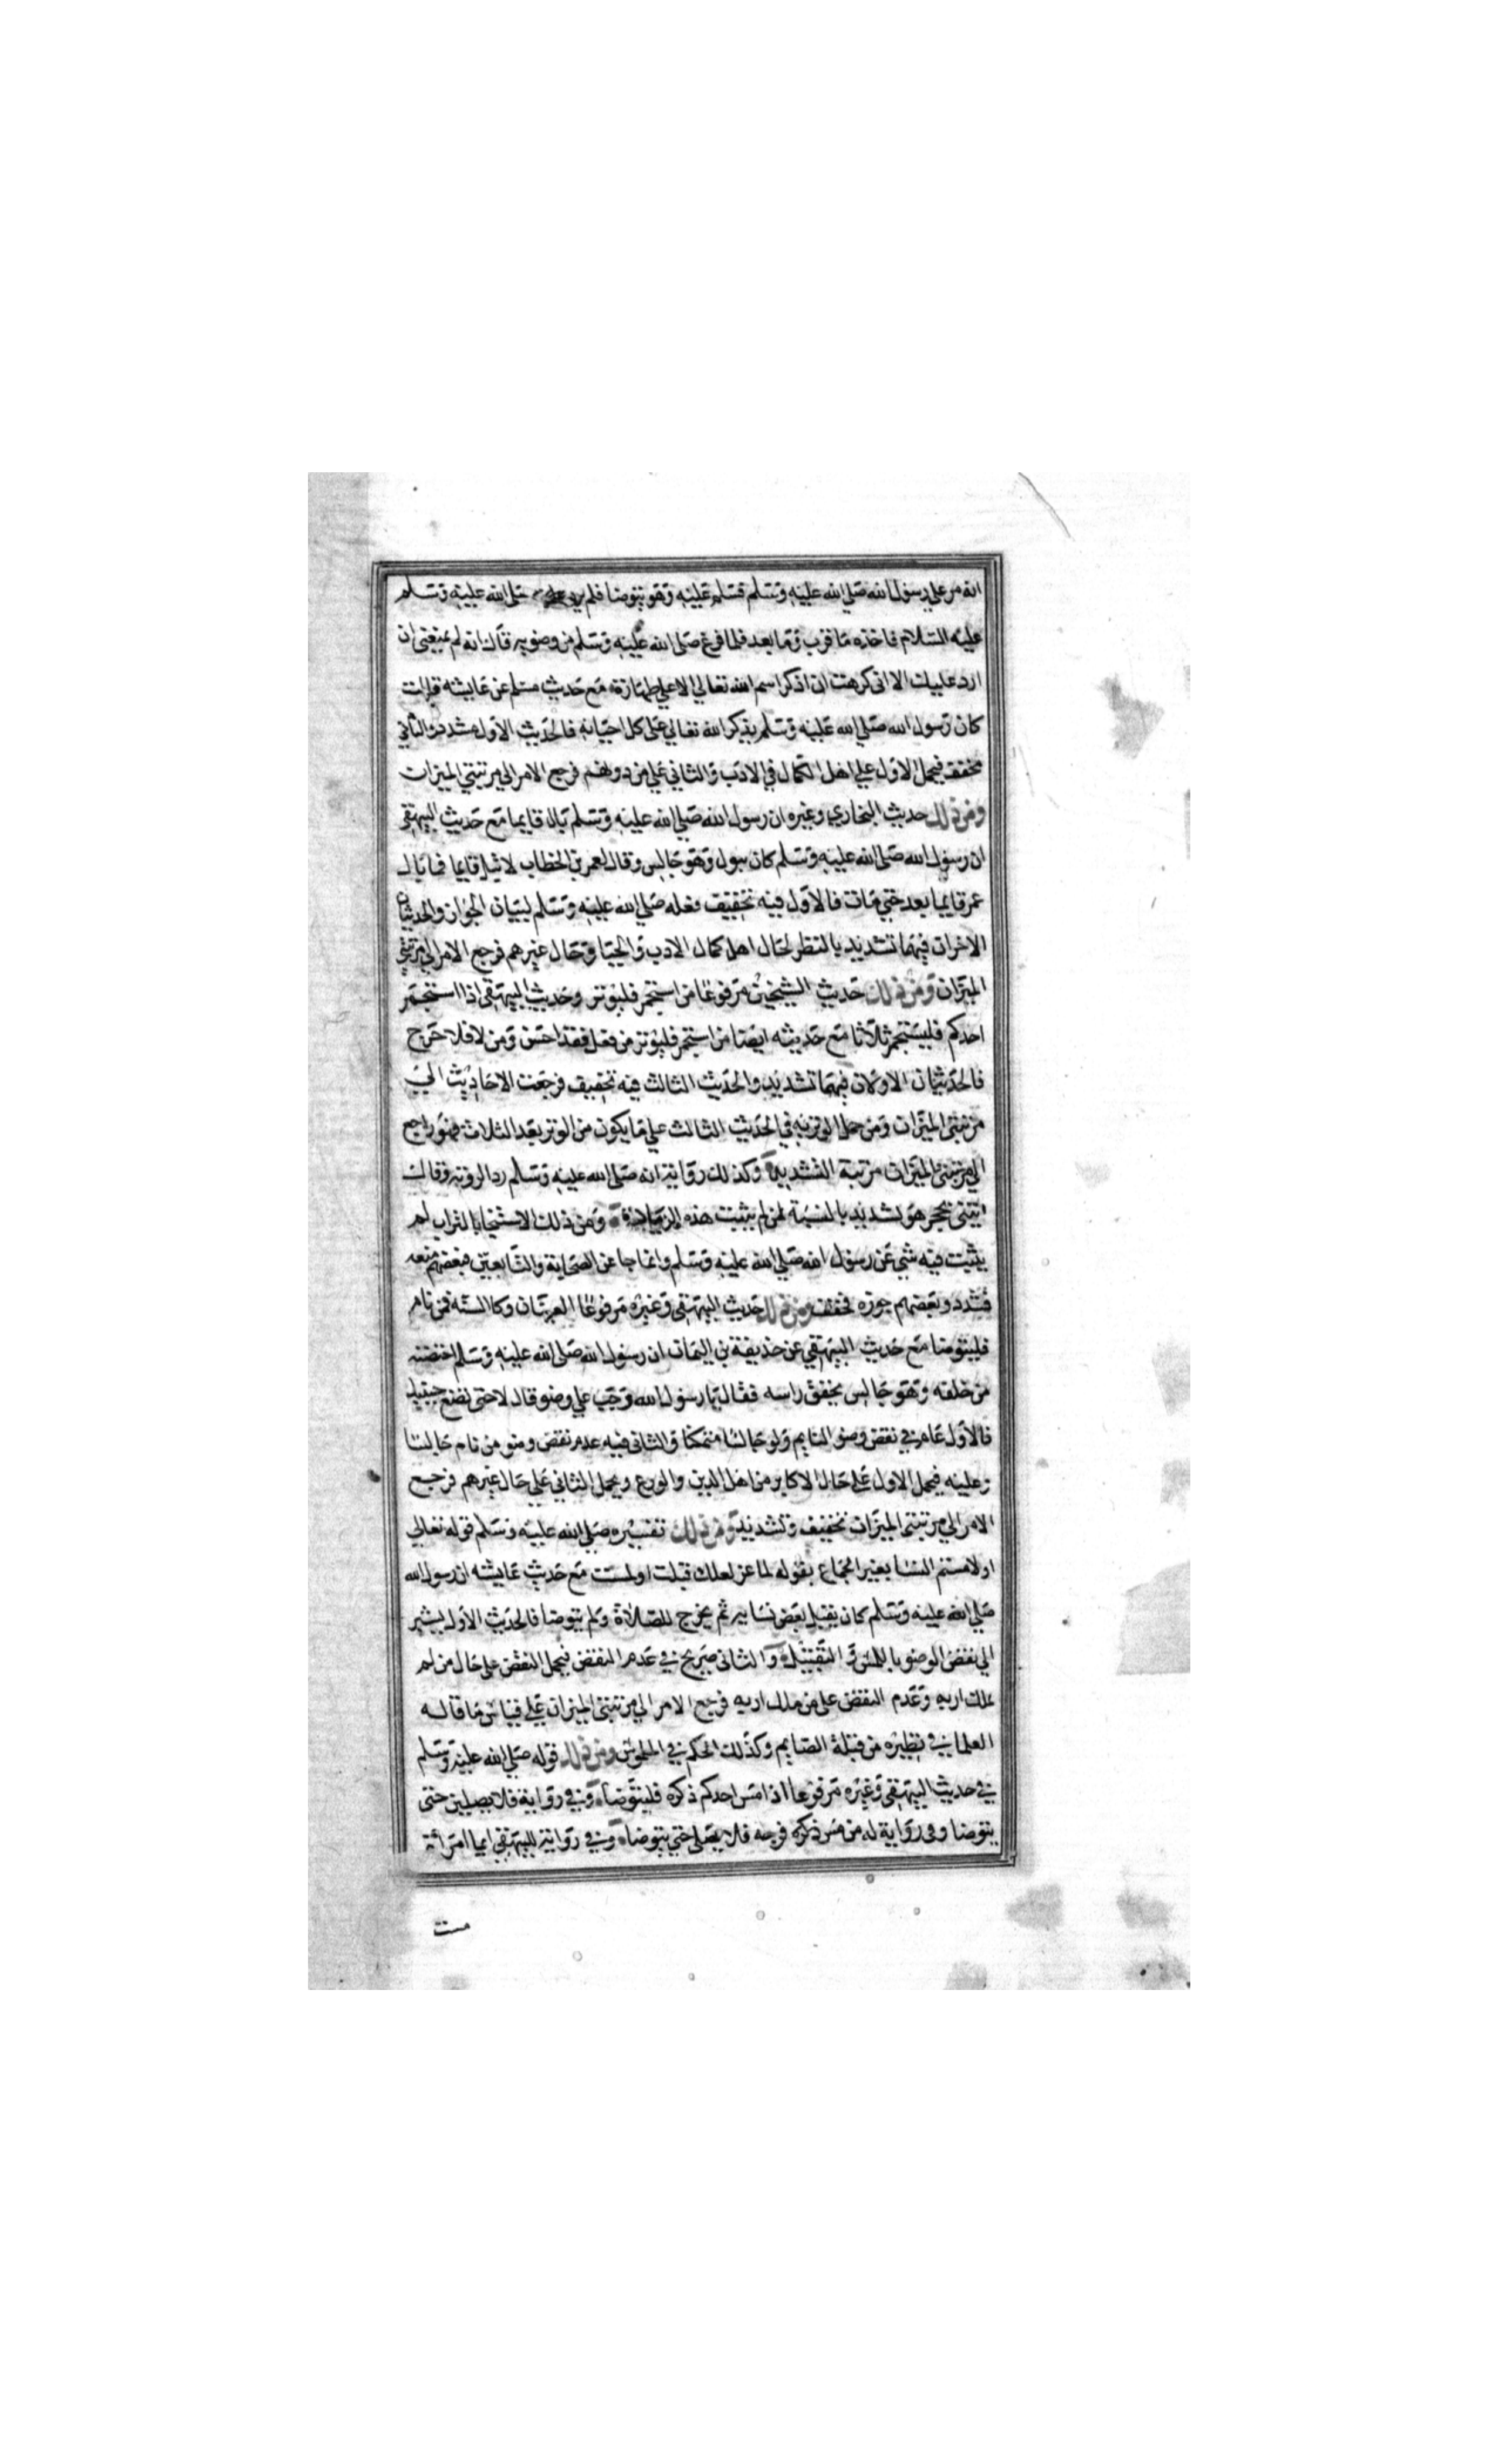 انه مر علي رسول الله صلي الله عليه وسلم فسلم عليه وهو يتوضا فلم يرد صلي الله عليه وسلم
عليه السلام فاخذه ما قرب وما بعد فلما فرغ صلي الله عليه وسلم من وضويه قال انه لم يمنعني ان
ارد عليك الا اني كرهت ان اذكر اسم الله تعالي الا علي طهارة مع حديث مسلم عن عايشه قالت
كان رسول الله صلي الله عليه وسلم يذكر الله تعالي على كل احيانه فالحديث الاول مشدد والثاني
مخفف فيحمل الاول علي اهل الكمال في الادب والثاني علي من دونهم فرجع الامر الي مرتبتي الميزان
ومن ذلك حديث البخاري وغيره ان رسول الله صلي الله عليه وسلم بال قايما مع حديث البيهقي
ان رسول الله صلى الله عليه وسلم كان يبول وهو جالس وقال لعمر بن الخطاب لا تبل قايما فما بال
عمر قايما بعد حتي مات فالاول فيه تخفيف فعله صلي الله عليه وسلم لبيان الجواز والحديثان
الاخران فيهما تشديد بالنظر لحال اهل كمال الادب والحيا وحال غيرهم فرجع الامر الي مرتبتي
الميزان ومن ذلك حديث الشيخين مرفوعا من استجمر فليوتر وحديث البيهقي اذا استجمر
احدكم فليستجمر ثلاثا مع حديثه ايضا من استجمر فليوتر من فعل فقد احسن ومن لا فلا حرج
فالحديثان الاولان فيهما تشديد والحديث الثالث فيه تخفيف فرجعت الاحاديث الي
مرتبتي الميزان ومن حمل الوتر به في الحديث الثالث علي ما يكون من الوتر بعد الثلاث فهو راجع
الي مرتبتي الميزان مرتبة التشديد وكذلك رواية انه صلي الله عليه وسلم رد الروثة وقال
ايتني بحجر هو تشديد بالنسبة لمن لم يثبت هذه الزيادة ومن ذلك الاستنجا بالتراب لم
يثبت فيه شي عن رسول الله صلي الله عليه وسلم وانما جا عن الصحابة والتابعين فبعضهم منعه
فشدد وبعضهم جوزه فخفف ومن ذلك حديث البيهقي وغيره مرفوعا العينان وكا السه فمن نام
فليتوضا مع حديث البيهقي عن حذيفة بن اليمان ان رسول الله صلى الله عليه وسلم احتضنه
من خلفه وهو جالس يخفق راسه فقال يا رسول الله وجب علي وضو قال لا حتى تضع جنبيك
فالاول عام في نقض وضو النايم ولو جالسا متمكنا والثاني فيه عدم نقض وضو من نام جالسا
وعليه فيحمل الاول علي حال الاكابر من اهل الدين والورع ويحمل الثاني علي حال غيرهم فرجع
الامر الي مرتبتي الميزان تخفيف وتشديد ومن ذلك تفسيره صلي الله عليه وسلم قوله تعالي
اولامستم النسا بغير الجماع بقوله لماعز لعلك قبلت او لمست مع حديث عايشه ان رسول الله
صلي الله عليه وسلم كان يقبل بعض نسايه ثم يخرج للصلاة ولم يتوضا فالحديث الاول يشير
الي نقض الوضو باللمس والتقبيل والثاني صريح في عدم النقض فيحمل النقض على حال من لم
يملك اربه وعدم النقض على من ملك اربه فرجع الامر الي مرتبتي الميزان علي قياس ما قاله
العلما في نظيره من قبلة الصايم وكذلك الحكم في الملموس ومن ذلك قوله صلي الله عليه وسلم
في حديث البيهقي وغيره مرفوعا اذا مس احدكم ذكره فليتوضا وفي رواية فلا يصلين حتى
يتوضا وفي رواية له من مس ذكره فرجه فلا يصلي حتي يتوضا وفي رواية للبيهقي ايما امراة
مست